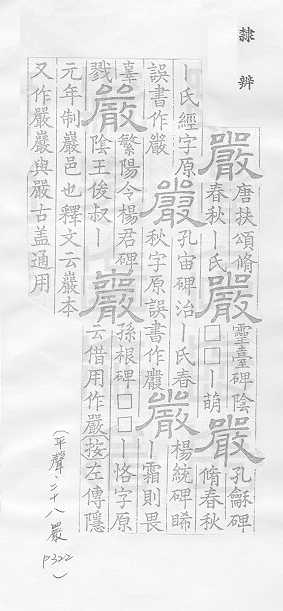 隸辨
嚴唐扶頌脩春秋ー氏嚴靈臺碑陰□□ー萌嚴孔龢碑脩春秋
ー氏經字原誤書作嚴嚴孔宙碑治ー氏春秋字原誤書作嚴楊統碑睎ー霜則畏
辜戮嚴繁陽令楊君碑陰王俊叔ー嚴孫根碑□□ー恪字原云借用作嚴按左傳隱
元年制嚴邑也釋文云嚴本又作嚴嚴與嚴古盖通用
(平聲·二十八嚴 p322)